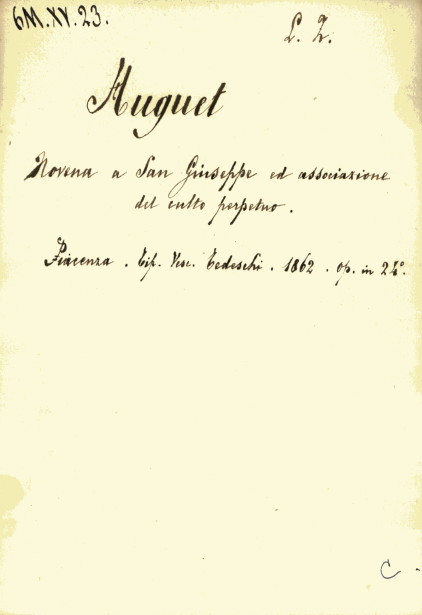 6M.XV.23.
L. L.
Huguet
Novena a San Giuseppe ed associazione
del culto perpetuo.
Piacenza. Tip. Vesc. Tedeschi. 1862. op. in 24°.
C